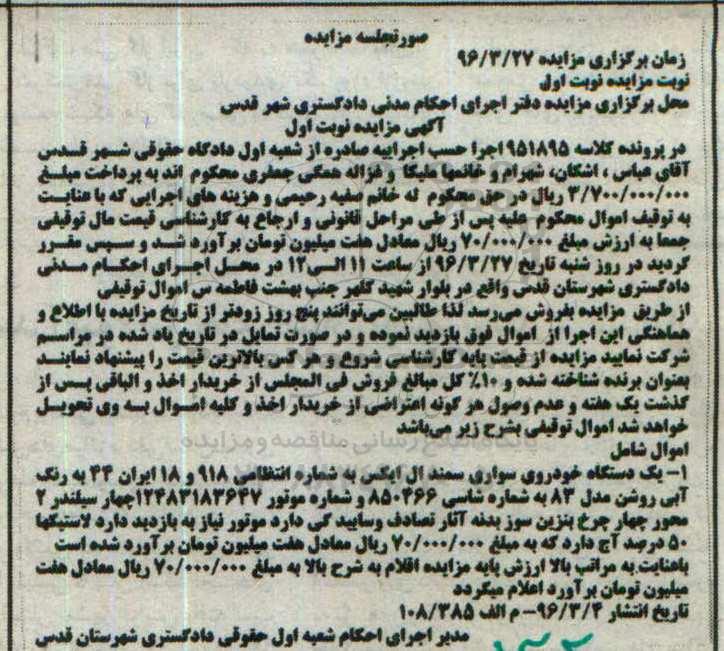 صورتجلسه مزایده
زمان برگزاری مزایده ۹۶/۳/۲۷
نوبت مزایده نوبت اول
محل برگزاری مزایده دفتر اجرای احکام مدنی دادگستری شهر قدس
آگهی مزایده نوبت اول
در پرونده کلاسه ۹۵۱۸۹۵ اجرا حسب اجراییه صادره از شعبه اول دادگاه حقوقی شهر قدس
آقای عباس ، اشکان، شهرام و خانمها ملیکا و غزاله همگی جعفری محکوم اند به پرداخت مبلغ
۳/۷۰۰/۰۰۰/۰۰۰ ریال در حق محکوم له خانم صفیه رحیمی و هزینه های اجرایی که با عنایت
به توقیف اموال محکوم علیه پس از طی مراحل قانونی و ارجاع به کارشناسی قیمت مال توقیفی
جمعا به ارزش مبلغ ۷۰/۰۰۰/۰۰۰ ریال معادل هفت میلیون تومان برآورد شد و سپس مقرر
گردید در روز شنبه تاریخ ۹۶/۳/۲۷ از ساعت ۱۱ الی ۱۲ در محل اجرای احکام مدنی
دادگستری شهرستان قدس واقع در بلوار شهید کلهر جنب بهشت فاطمه س اموال توقیفی
از طریق مزایده بفروش می‌رسد لذا طالبین می‌توانند پنج روز زودتر از تاریخ مزایده با اطلاع و
هماهنگی این اجرا از اموال فوق بازدید نموده و در صورت تمایل در تاریخ یاد شده در مراسم
شرکت نمایند مزایده از قیمت پایه کارشناسی شروع و هر کس بالاترین قیمت را پیشنهاد نماید
بعنوان برنده شناخته شده و ۱۰٪ کل مبالغ فروش فی المجلس از خریدار اخذ و الباقی پس از
گذشت یک هفته و عدم وصول هر گونه اعتراضی از خریدار اخذ و کلیه اموال به وی تحویل
خواهد شد اموال توقیفی بشرح زیر می‌باشد
اموال شامل
۱- یک دستگاه خودروی سواری سمند ال ایکس به شماره انتظامی ۹۱۸ و ۱۸ ایران ۴۴ به رنگ
آبی روشن مدل ۸۳ به شماره شاسی ۸۵۰۴۶۶ و شماره موتور ۱۲۴۸۳۱۸۳۶۴۷ چهار سیلندر ۲
محور چهار چرخ بنزین سوز بدنه آثار تصادف وسایید گی دارد موتور نیاز به بازدید دارد لاستیکها
۵۰ درصد آج دارد که به مبلغ ۷۰/۰۰۰/۰۰۰ ریال معادل هفت میلیون تومان برآورد شده است
باعنایت به مراتب بالا ارزش پایه مزایده اقلام به شرح بالا به مبلغ ۷۰/۰۰۰/۰۰۰ ریال معادل هفت
میلیون تومان برآورد اعلام میگردد
تاریخ انتشار ۹۶/۳/۴- م الف ۱۰۸/۳۸۵
مدیر اجرای احکام شعبه اول حقوقی دادگستری شهرستان قدس